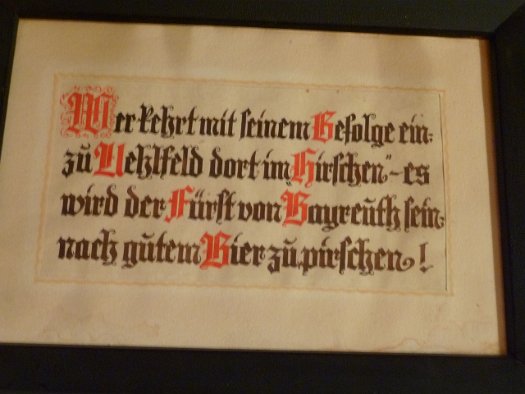 Wer kehrt mit seinem Gefolge ein-
zu Uehlfeld dort im „Hirschen“ – es
wird der Fürst von Bayreuth sein-
nach gutem Bier zu pirschen!